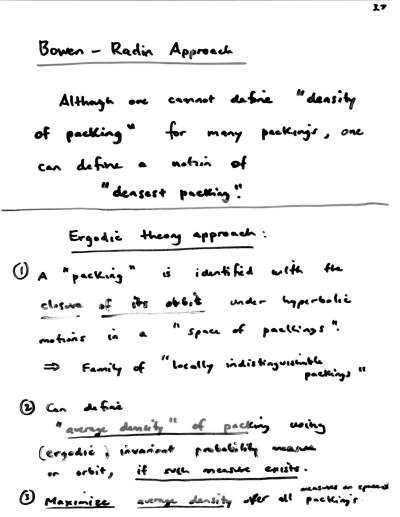 27
Bowen - Radin Approach
Although one cannot define "density
of packing" for many packings, one
can define a notion of
"densest packing."
Ergodic theory approach:
① A "packing" is identified with the
closure of its orbit under hyperbolic
motions in a "space of packings".
⇒ Family of "locally indistinguishable
packings"
② Can define
"average density" of packing using
(ergodic) invariant probability measure
on orbit, if such measure exists.
③ Maximize average density over all measures on space of
packings